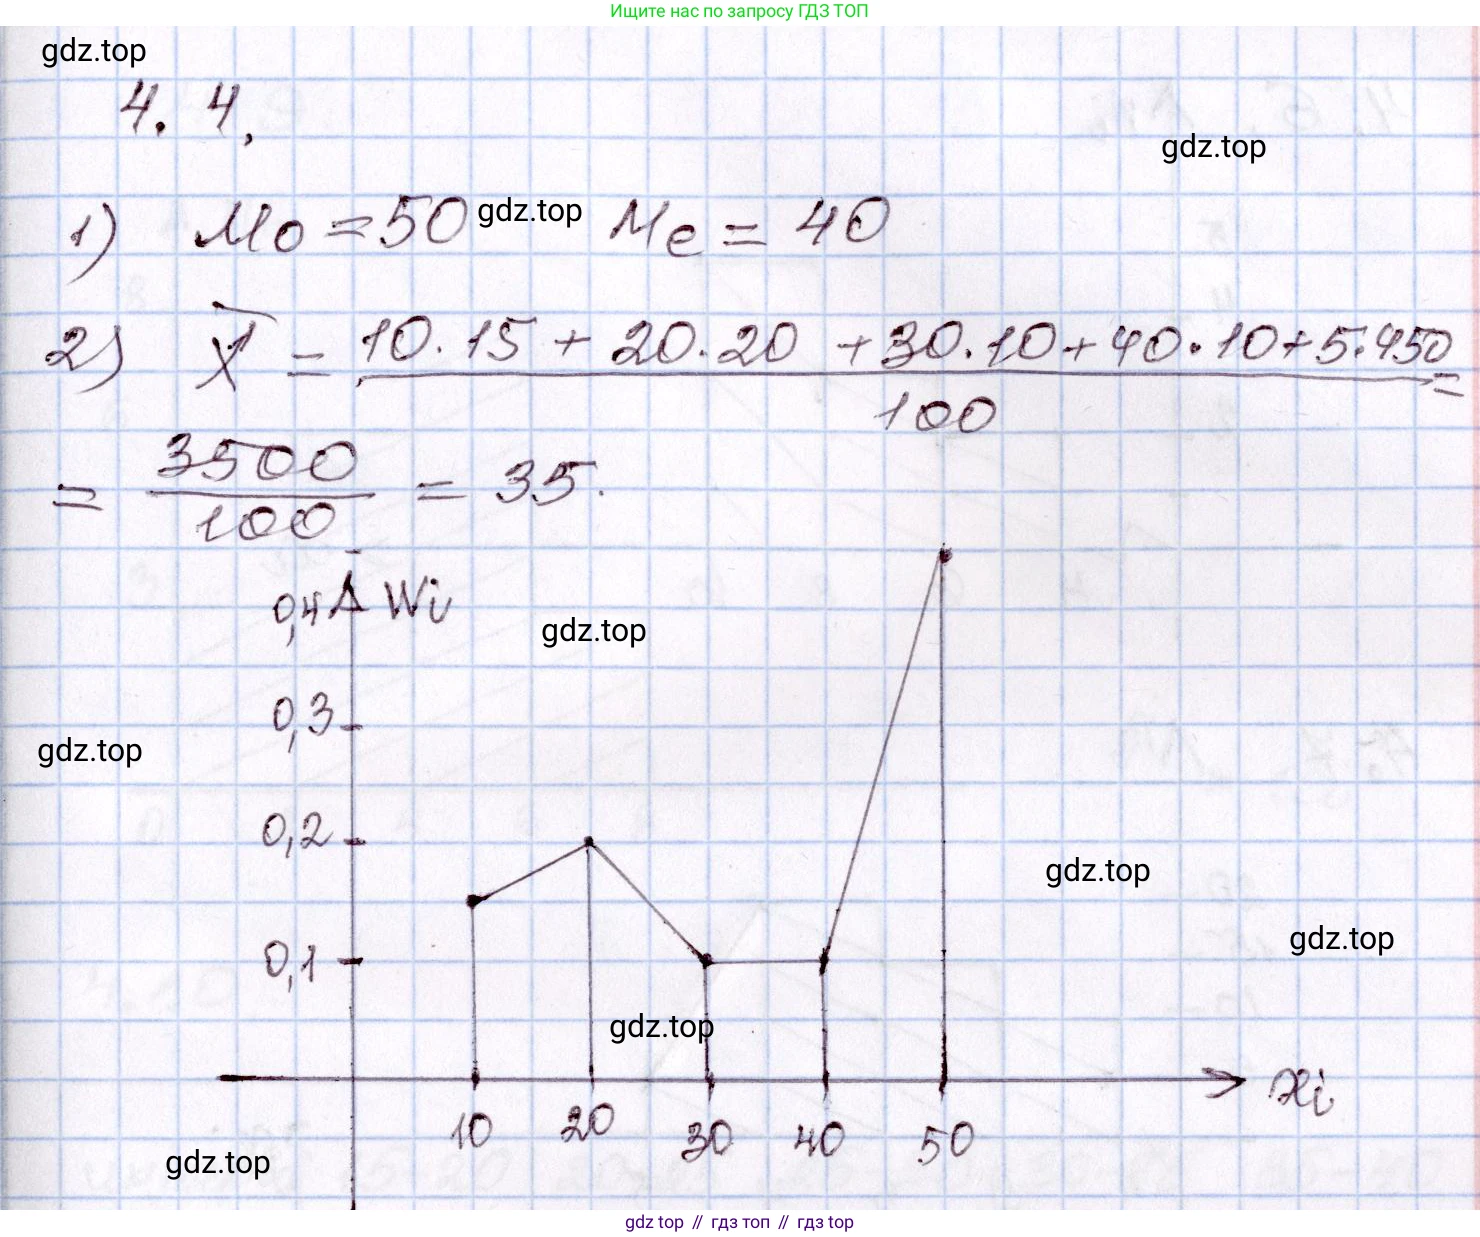 Ищите нас по запросу ГДЗ ТОП
gdz.top
4. 4.
gdz.top
1) Mo = 50 gdz.top Me = 40
2) X̅ = (10·15 + 20·20 + 30·10 + 40·10 + 5·450)/100 =
= 3500/100 = 35.
0,4 Wi
gdz.top
0,3
gdz.top
0,2
gdz.top
gdz.top
0,1
gdz.top
xi
10 20 30 40 50
gdz.top
gdz top // гдз топ // гдз top